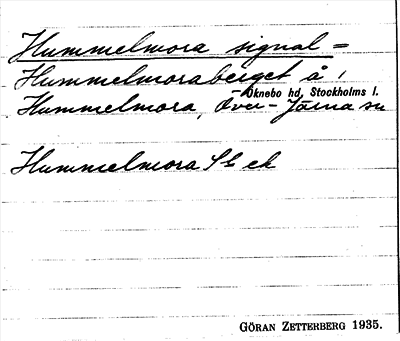 Hummelmora signal =
Hummelmoraberget å
Öknebo hd, Stockholms l.
Hummelmora, Över-Järna sn
Hummelmora
GÖRAN ZETTERBERG 1935.